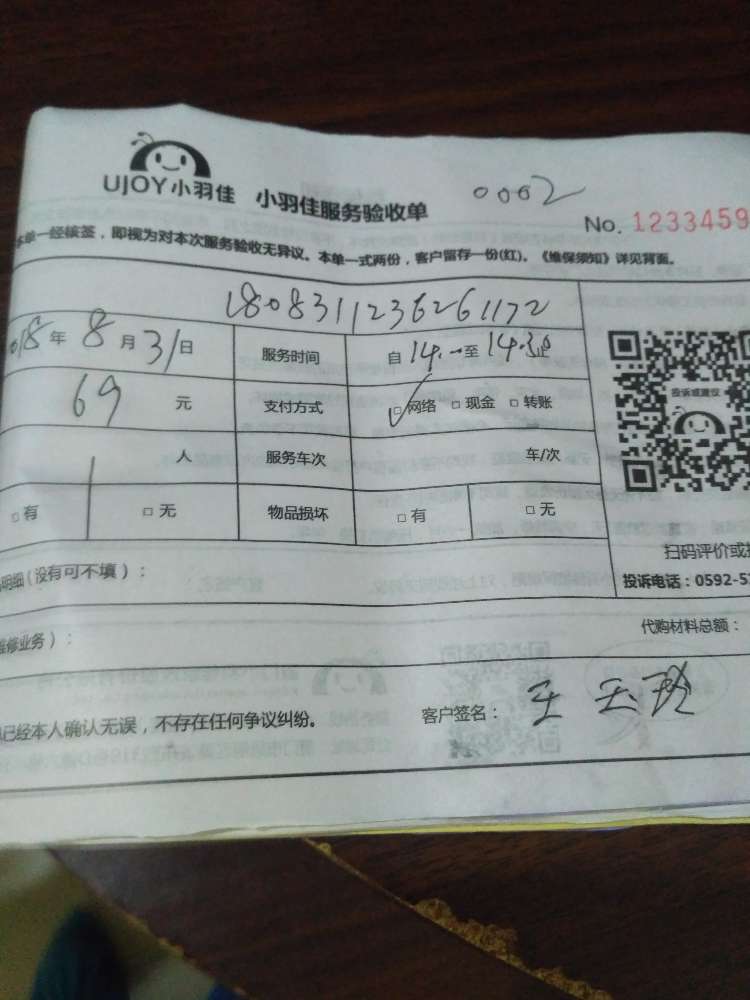 UJOY小羽佳 小羽佳服务验收单 0002
No. 1233459
本单一经核签，即视为对本次服务验收无异议。本单一式两份，客户留存一份(红)。《维保须知》详见背面。
1808311236261172
018年8月31日 服务时间 自14:00至14:30止
69元 支付方式 ☑网络 □现金 □转账
投诉或建议
1人 服务车次 车/次
□有 □无 物品损坏 □有 □无
扫码评价或
明细(没有可不填)：
投诉电话：0592-5
维修业务)：
代购材料总额：
已经本人确认无误，不存在任何争议纠纷。
客户签名：王玉